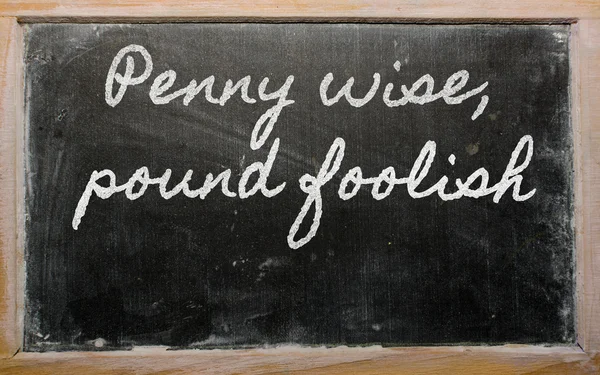 Penny wise,
pound foolish